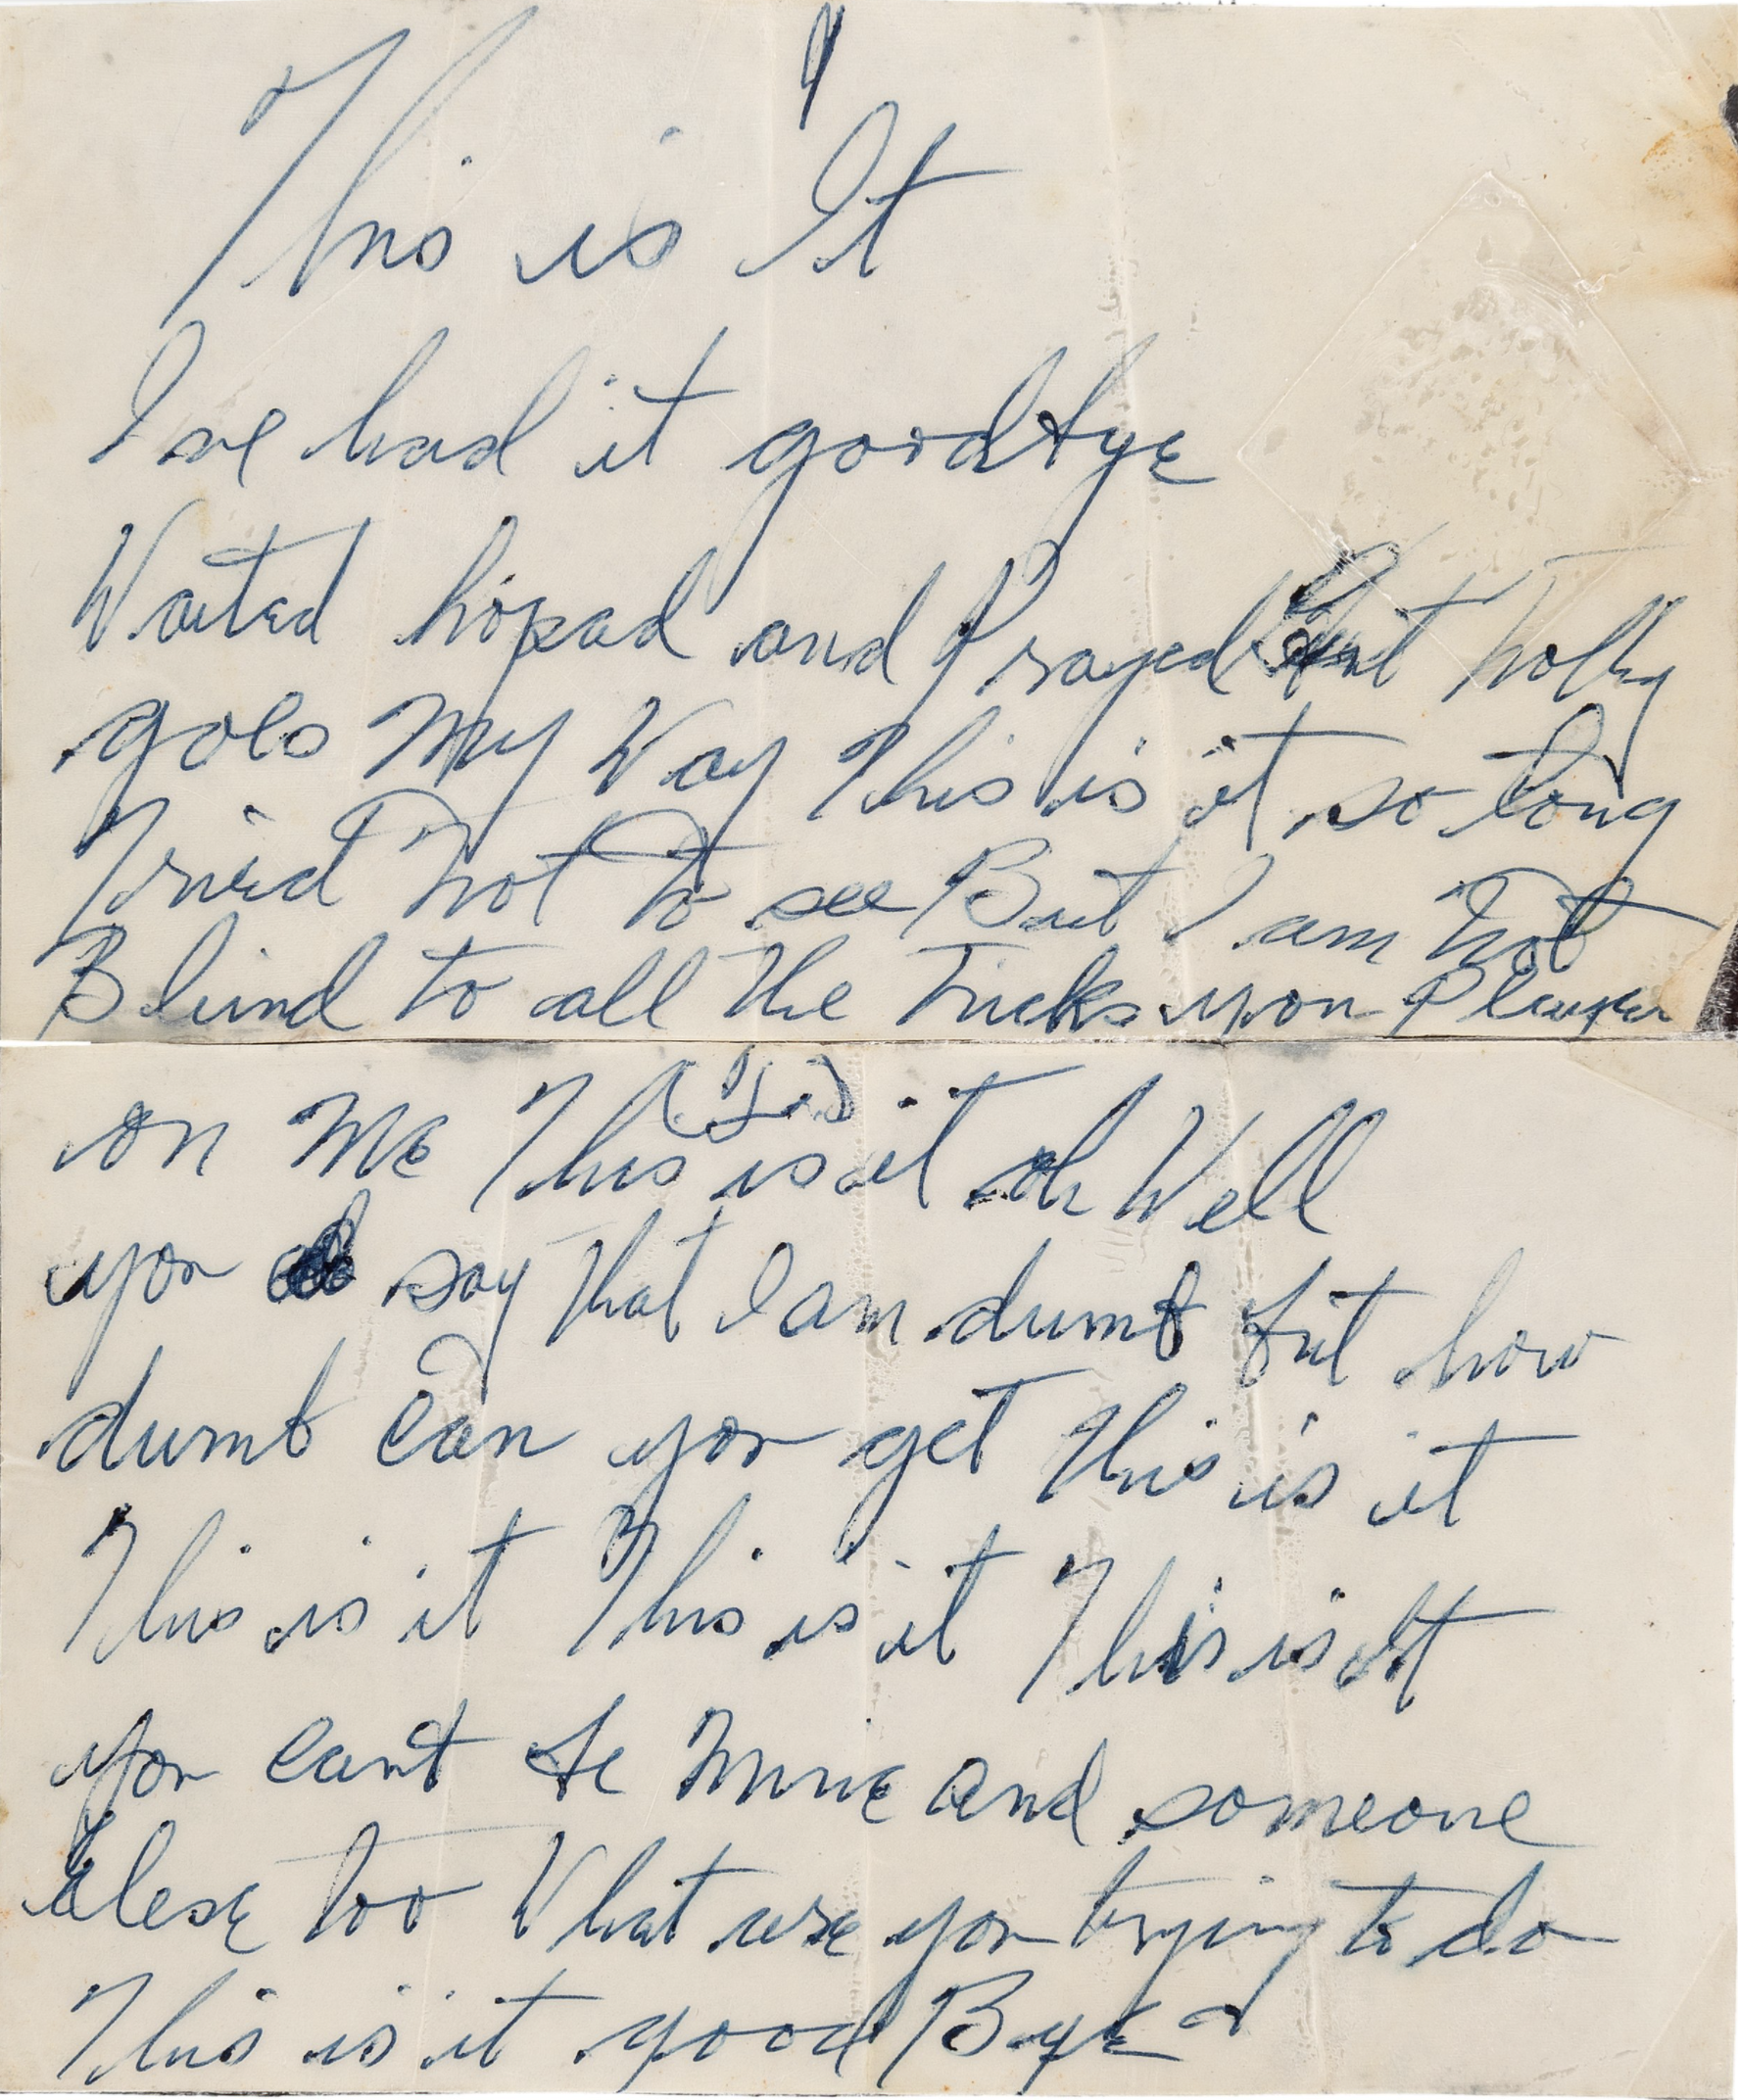 This is It
I ve had it goodbye
Waited hoped and Prayed But
goes My Way This is it so long
Tried Not To see But I am Not
Blind to all The Tricks you
on Me This is it oh Well
you say That I am dumb but how
dumb can you get This is it
This is it This is it This is it
you cant be Mine and someone
elese too What are you trying to do
This is it good Bye